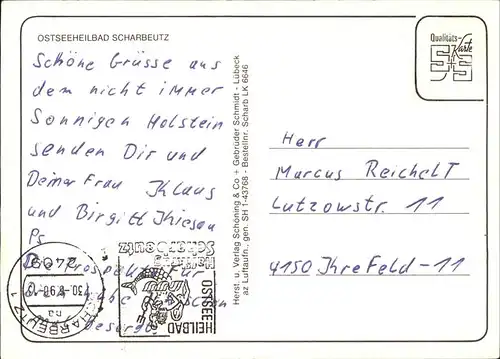 OSTSEEHEILBAD SCHARBEUTZ
Schöne Grüsse aus
dem nicht immer
Sonnigen Holstein
senden Dir und
Deiner Frau Klaus
und Birgitt Thiesen
Ps
Die Prospekte für
habe
besorgt.
Qualitäts-
Karte
S+S
Herr
Marcus Reichelt
Lutzowstr. 11
4150 Krefeld-11
Herst. u. Verlag Schöning & Co + Gebrüder Schmidt - Lübeck
az Luftaufn., gen. SH 1-43768 - Bestellnr. Scharb LK 6646
2409
30.-8.90
SCHARBEUTZ 1
na
Scharbeutz
OSTSEE
HEILBAD